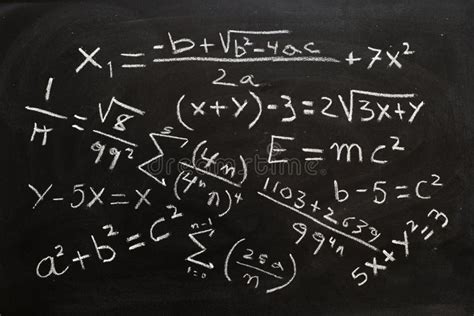 x₁ = (-b + √(b² - 4ac)) / 2a + 7x²
1/π = √8 / 99² Σ⁵ (4n) / (4ⁿ n)
(x+y) - 3 = 2√(3x+y)
E = mc²
y - 5x = x
1103 + 263a / 99⁴ⁿ
b - 5 = c²
a² + b² = c²
Σ i=0 n-1 (25a / n)
5x + y² = 3
dreamstime